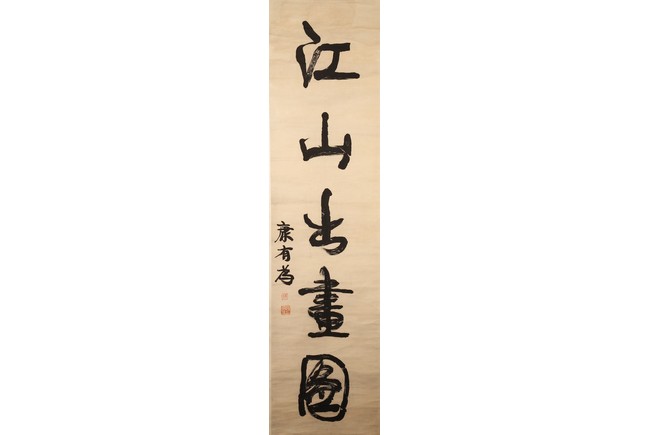 江山出畫图
康有為